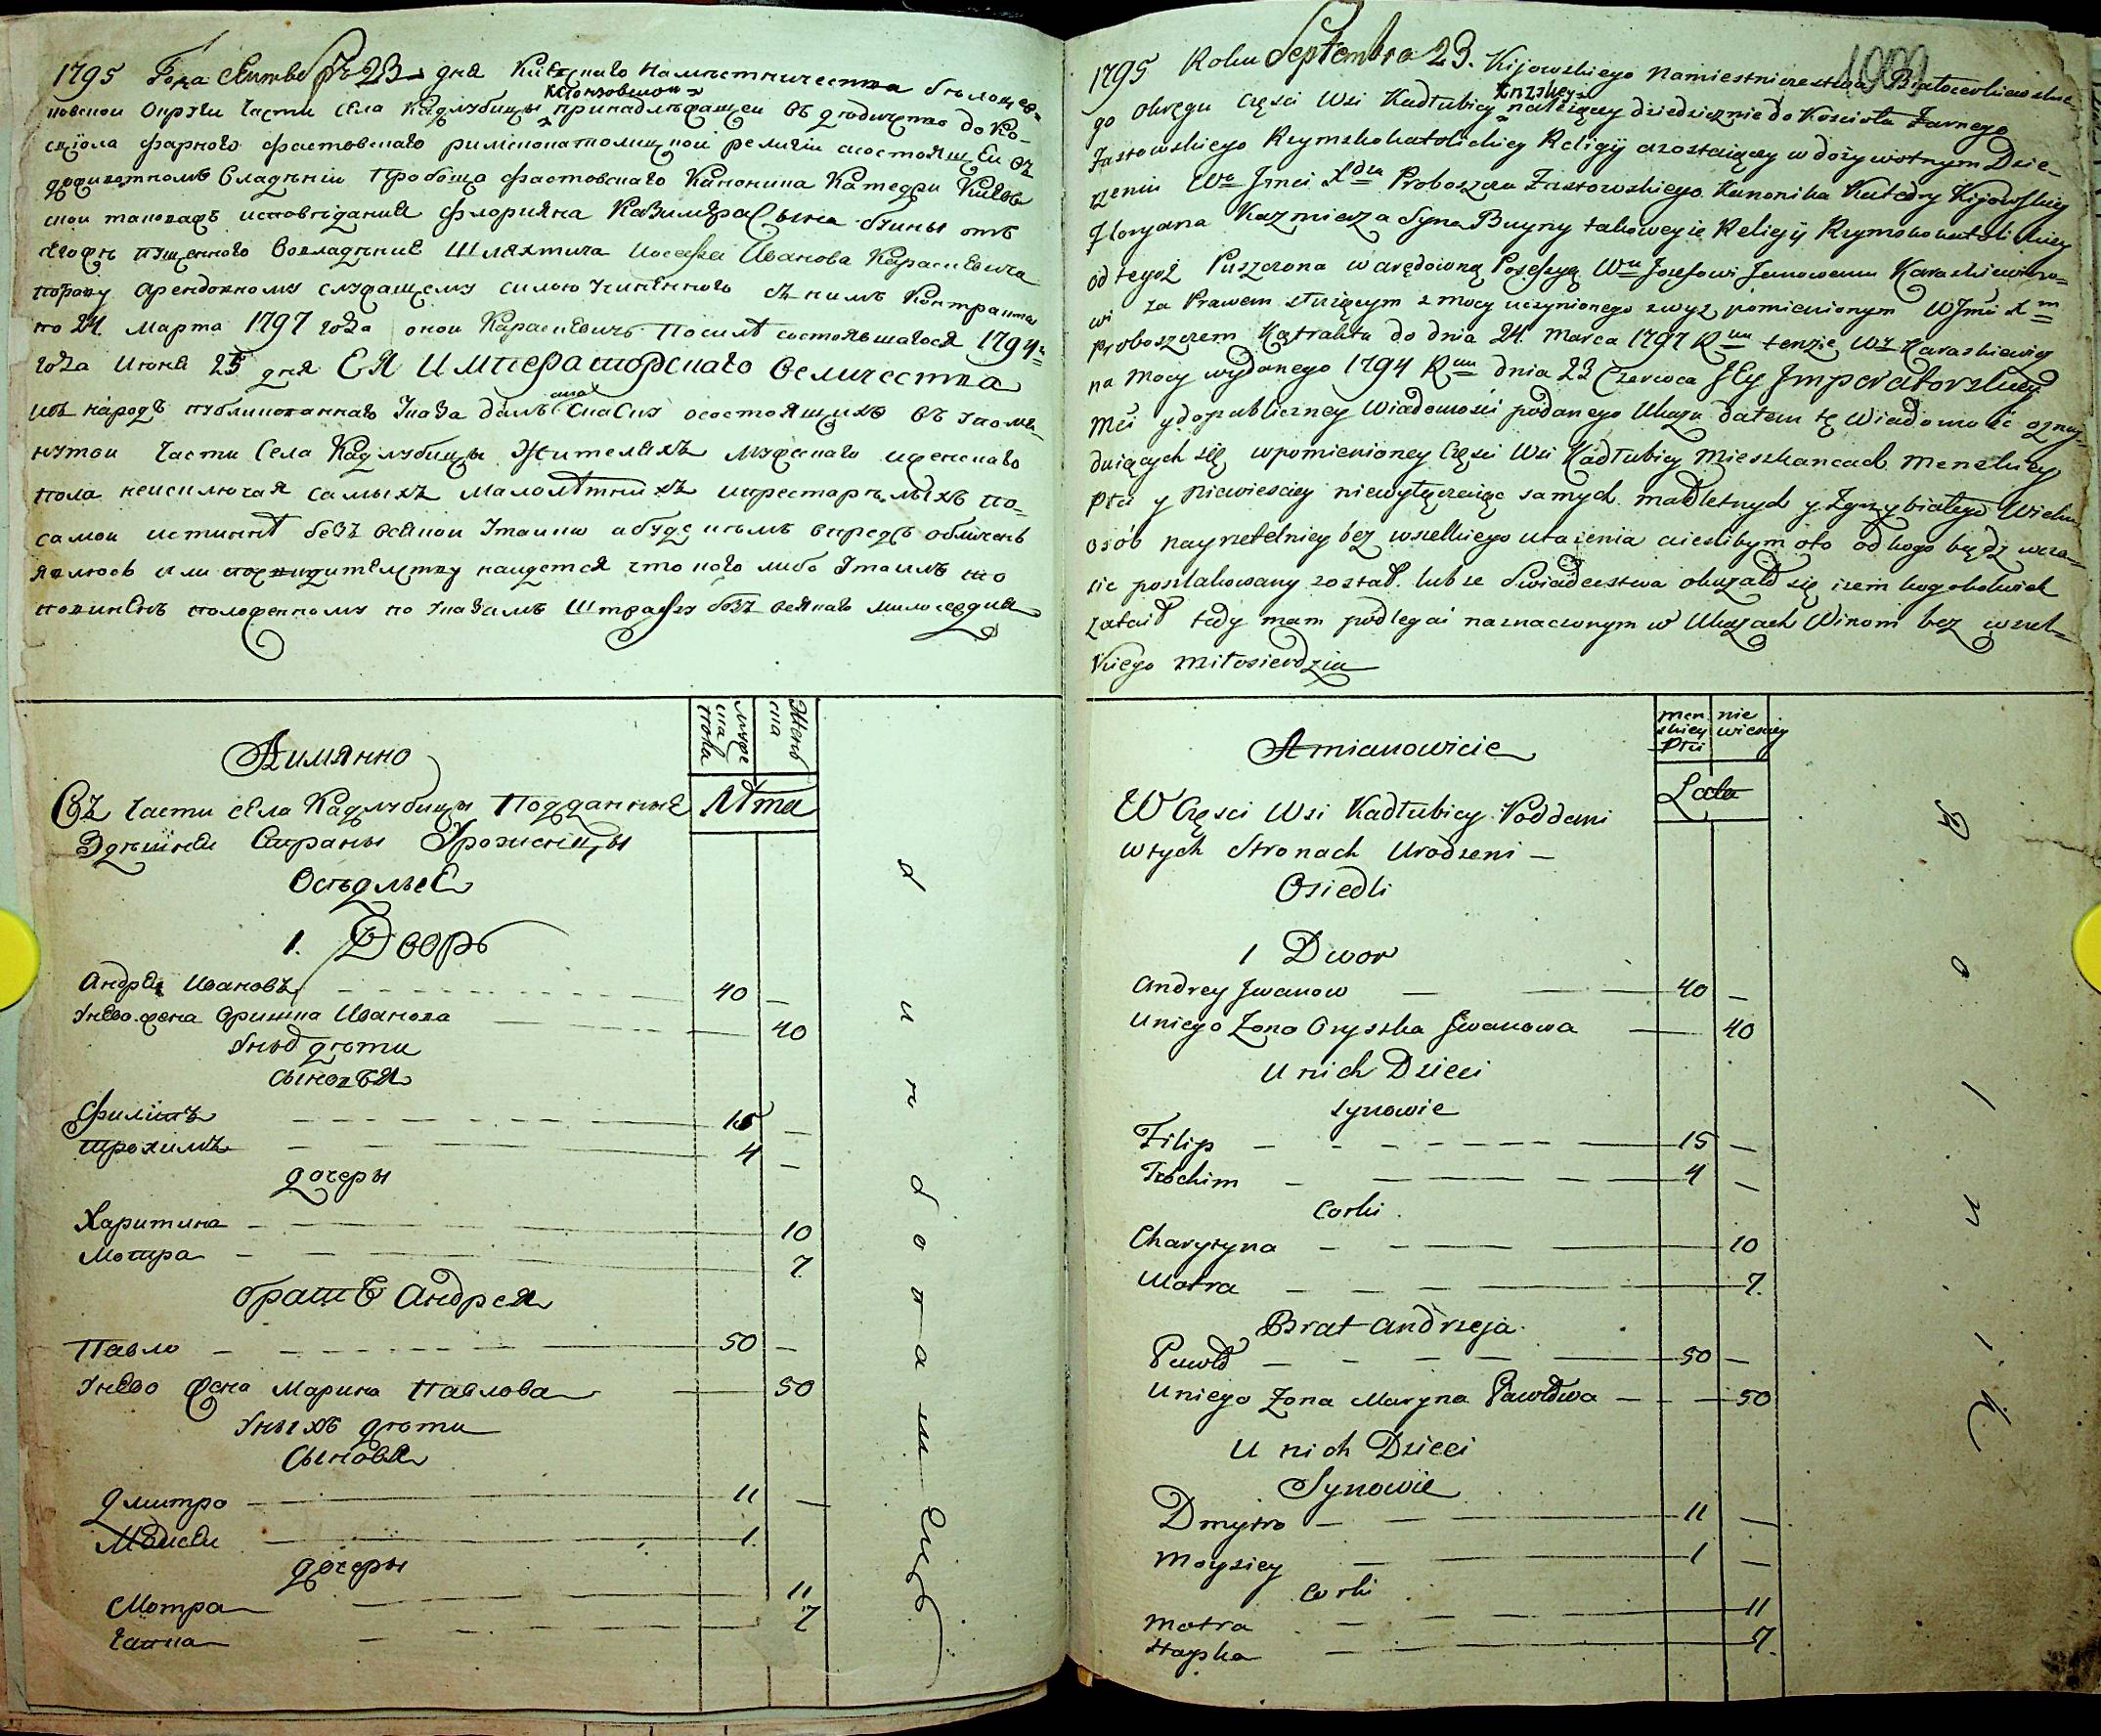 1795 Года Сентября 23 дня Киевскаго Наместничества белоцер-
ковской Округи Части Села Кадлубицы принадлежащей въ дедичство до Ко-
сцiола фарного фастовского римскокатолицкой религiи состоящей въ
доживотномъ Владѣнiи Пробоща фастовского Каноника Катедри Киевъ
ской таковажъ исповедания флорияна Казимѣра Сына буйны отъ
егожъ пущенного вовладѣние Шляхтича Иосефа Иванова Караскевича
поправу арендовному служащему силою учиненного съ нимъ Контракта
по 24 марта 1797 года оной Караскевичъ посилѣ состоявшагося 1794
года Июня 23 дня ЕЯ Императорскаго величества
въ народъ публикованнаго Указа далъ сию Скаску осостоящихъ въ упомя-
нутой Части Села Кадлубицы Жителяхъ мужескаго иженскаго
пола неисключая самыхъ малолѣтныхъ ипрестарелыхъ по
самой истиннѣ безъ всякой Утайки абуде кѣмъ впредь обличенъ
явлюсь или посвидителству найдется что кого либо Утаилъ то
повиненъ положенному по Указамъ Штрафу безъ всякаго милосердия
Аимянно
мужеска пола
Женска
Лѣта
Въ Части Села Кадлубицы Подданные
Здешней Страны Уроженцы
Оседлые
1. Дворъ
Андрей Ивановъ 40 —
Унево жена Оришка Иванова — 40
Уныхъ дѣти
Сыновья
Филипъ 15 —
Трохимъ 4 —
дочеры
Харитина 10
Мотра 7
братъ Андрея
Павло 50 —
Унево Жена Марина Павлова 50
Уныхъ дѣти
Сыновья
Дмитро 11 —
Мойсей 1.
дочеры
Мотра 11
Гапка 7
1009
1795 Roku Septembra 23. Kijowskiego Namiestnicestwa Białocerkiewskie-
go Okręgu Części Wsi Kadłubicy należącey dziedzicznie do Kościoła Farnego
Fastowskiego Rzymskokatolickiey Religij azostaiącey w dożywotnym Dzie-
rzeniu Wo Jmci Xdza Proboszcza Fastowskiego Kanonika Katedry Kijowskiey
Floryana Kazmierza Syna Buyny takoweyże Religij Rzymskokatolickiey
od tegoż Puszczona warędowną Posesyą Wu Jozefowi Janowemu Karaskiewiczo-
wi za Prawem służącym z mocy uczynionego zwyż pomienionym WJmć Xm
Proboszczem Kątraktu do dnia 24 Marca 1797 Ru tenże Wy Karaskiewicz
na mocy wydanego 1794 Ru dnia 23 Czerwca JEy Jmperatorskiey
Mci ydopubliczney Wiadomości podanego Ukazu dałem tę Wiadomość oznay-
duiących się wpomienioney Części Wsi Kadłubicy Mieszkancach Menskiey
Płci y Niewiesciey niewyłączaiąc samych małoletnych y Zgrzybiałego Wieku
osób nayrzetelniey bez wszelkiego utaienia aiesliбym oto od kogo bądź wcza-
sie poszlakowany został lub ze Swiadectwa okazało się iżem kogokolwiek
zataił tedy mam podlegać naznaczonym w Ukazach Winom bez wszel-
kiego miłosierdzia
Amianowicie
men skiey Płci
nie wiesciey
Lata
W Częsci Wsi Kadłubicy Poddani
wtych Stronach Urodzeni —
Osiedli
1 Dwor
Andrey Jwanow 40 —
Uniego Zona Oryszka Jwanowa 40
U nich Dzieci
synowie
Filip 15 —
Trochim 4 —
Corki
Charytyna 10
Motra 7.
Brat Andrzeja
Pawło 50 —
Uniego Zona Maryna Pawłowa 50
U nich Dzieci
Synowie
Dmytro 11 —
Moysiey 1 —
Corki
Motra 11
Hapka 7.